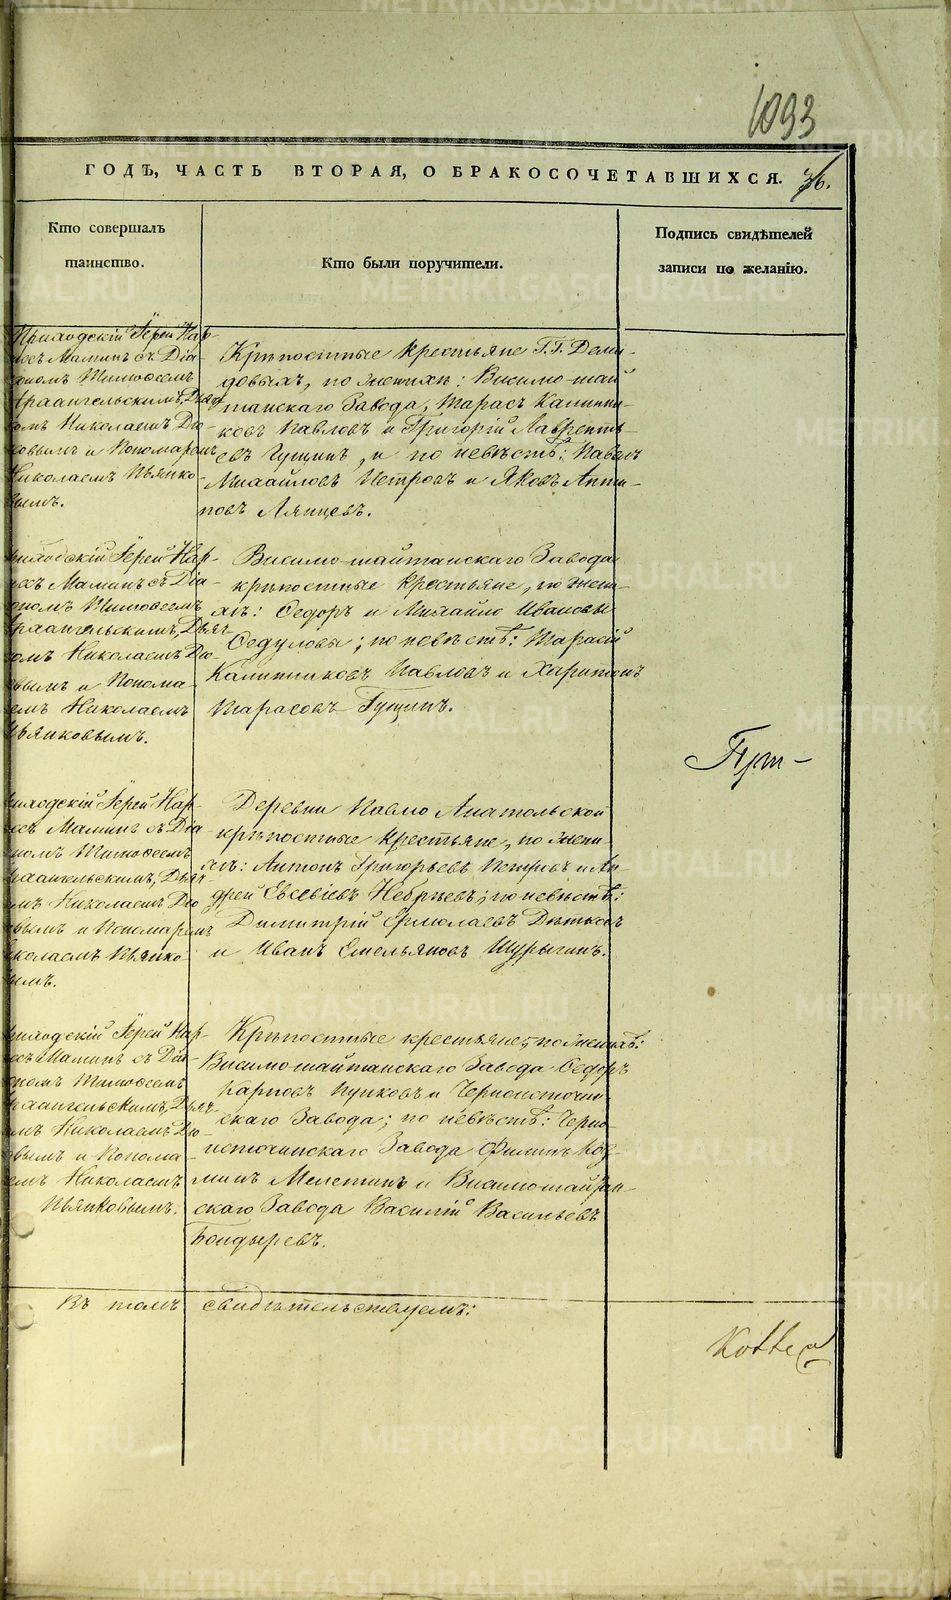 1093
ГОДЪ, ЧАСТЬ ВТОРАЯ, О БРАКОСОЧЕТАВШИХСЯ.
36.
Кто совершалъ
таинство.
Кто были поручители.
Подпись свидѣтелей
записи по желанію.
Приходскій Іерей Нар-
Маминъ съ Діа-
Тимоѳеемъ
Архангельскимъ, Дьяч
Николаемъ Дю-
ковымъ и Пономаремъ
Николаемъ Пьянко-
вымъ.
Крѣпостные крестьяне Г.Г. Деми-
довыхъ, по женихѣ: Висимо-шай
танскаго Завода, Тарасъ Калинни-
ковъ Павловъ и Григорій Лаврентъ-
евъ Гущинъ, и по невѣстѣ: Павелъ
Михайловъ Петровъ и Яковъ Анти-
повъ Ляпцевъ.
Іерей Нар-
Маминъ съ Діа-
Тимоѳеемъ
Архангельскимъ, Дьяч
Николаемъ Дю-
и Понома-
Николаемъ
Пьянковымъ.
Висимо-шайтанскаго Завода
крѣпостные крестьяне, по жени-
хѣ: Ѳедоръ и Михайло Ивановы
Ѳедуловы; по невѣстѣ: Тарасій
Калинниковъ Павловъ и Харитонъ
Тарасовъ Гущинъ.
Іерей Нар-
Маминъ съ Діа-
Тимоѳеемъ
Архангельскимъ, Дьяч
Николаемъ Дю
и Пономаремъ
Николаемъ Пьянко-
вымъ.
Деревни Павло Анатольской
крѣпостные крестьяне, по жени-
хѣ: Антонъ Григорьевъ Петровъ и Ан
дрей Евсевіевъ; по невѣстѣ:
Димитрій Ермолаевъ
и Иванъ Емельяновъ Шурыгинъ.
Іерей Нар-
Маминъ съ Діа-
Тимоѳеемъ
Архангельскимъ, Дьяч
Николаемъ Дю-
и Понома-
Николаемъ
Пьянковымъ.
Крѣпостные крестьяне, по женихѣ:
Висимошайтанскаго Завода Ѳедоръ
Карповъ и Черноисточин
скаго Завода; по невѣстѣ: Черно
источинскаго Завода Филипъ Коз-
минъ и Висимошайтан-
скаго Завода Василій Васильевъ
Бондыревъ.
Въ томъ свидѣтельствуемъ: